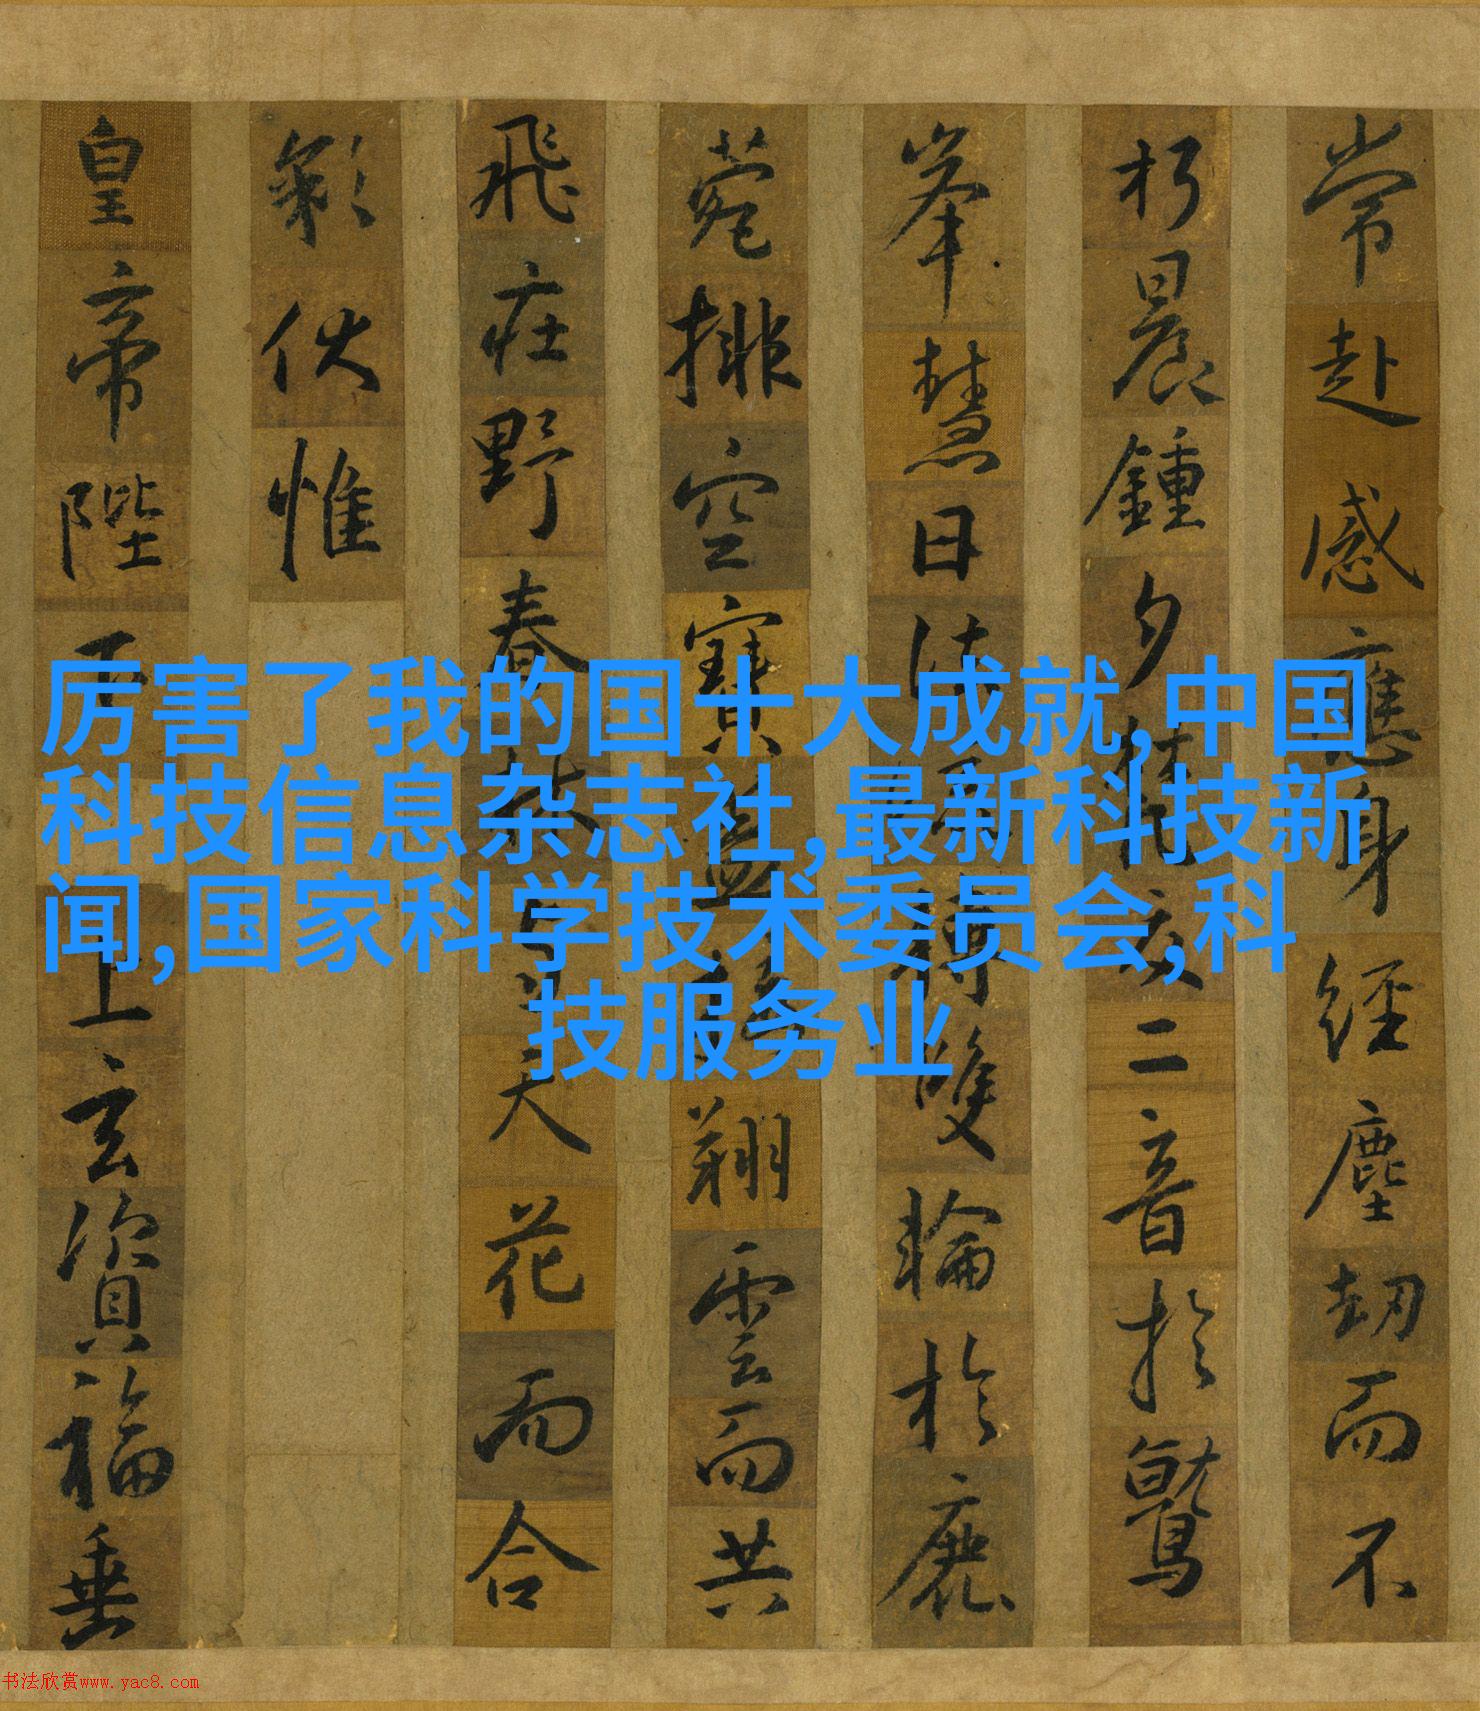 常赴感應身經塵劫而不
朽晨鍾夕梵交二音於鷲
峯慧日法流轉雙輪於鹿
菀排空寶蓋接翔雲而共
飛莊野春林與天花而合
彩伏惟
皇帝陛下上玄資福垂
厉害了我的国十大成就,中国
科技信息杂志社,最新科技新
闻,国家科学技术委员会,科
技服务业
书法欣赏www.yac8.com